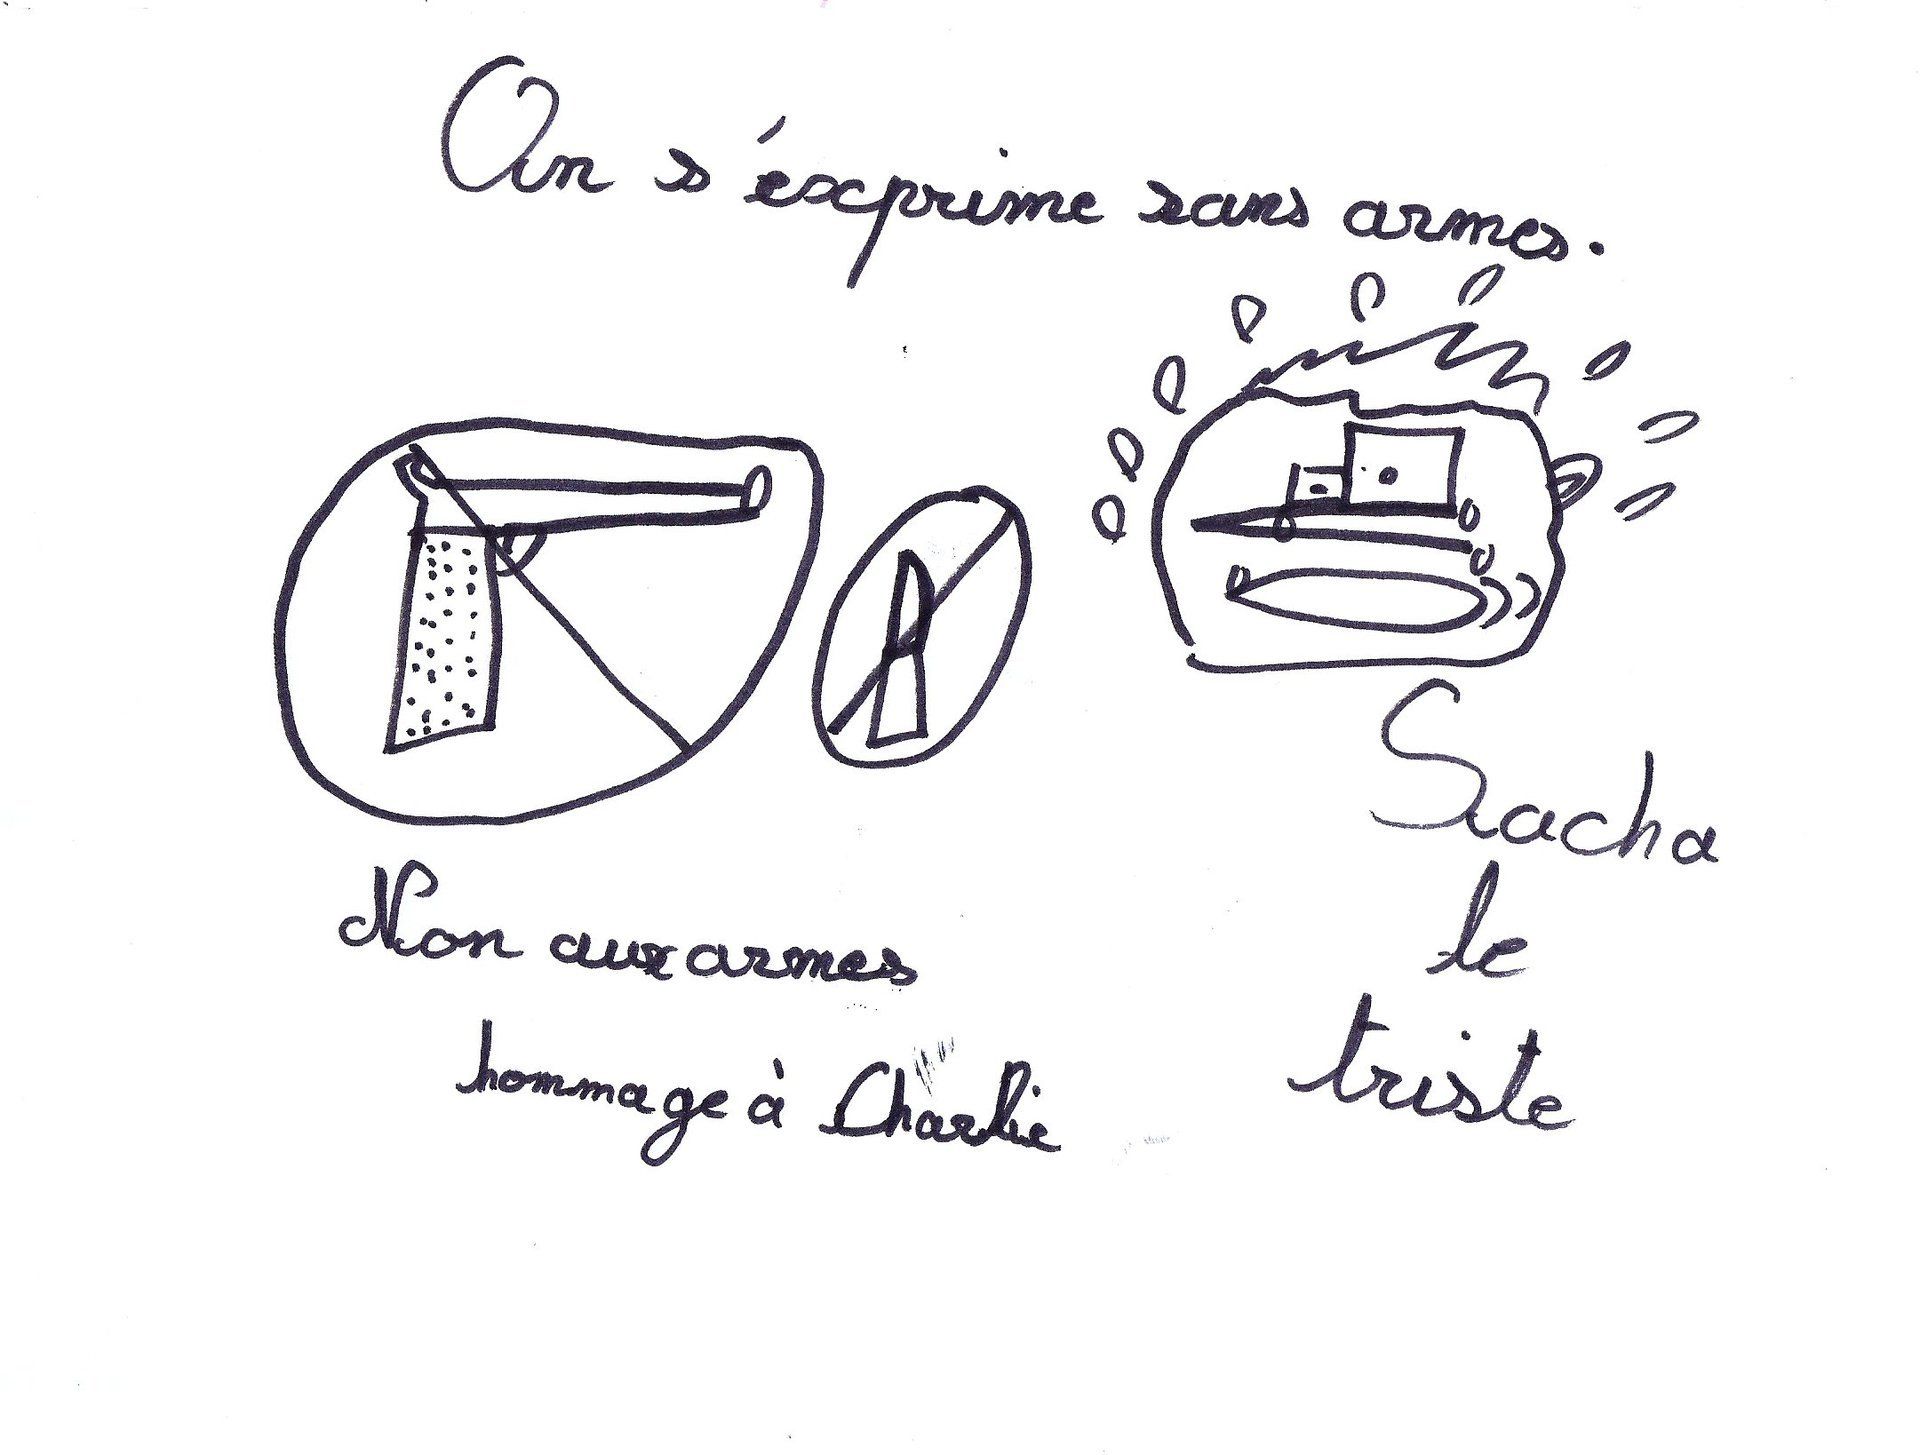 On s'éxcprime sans armes.
Non aux armes
hommage à Charlie
Sacha
le
triste